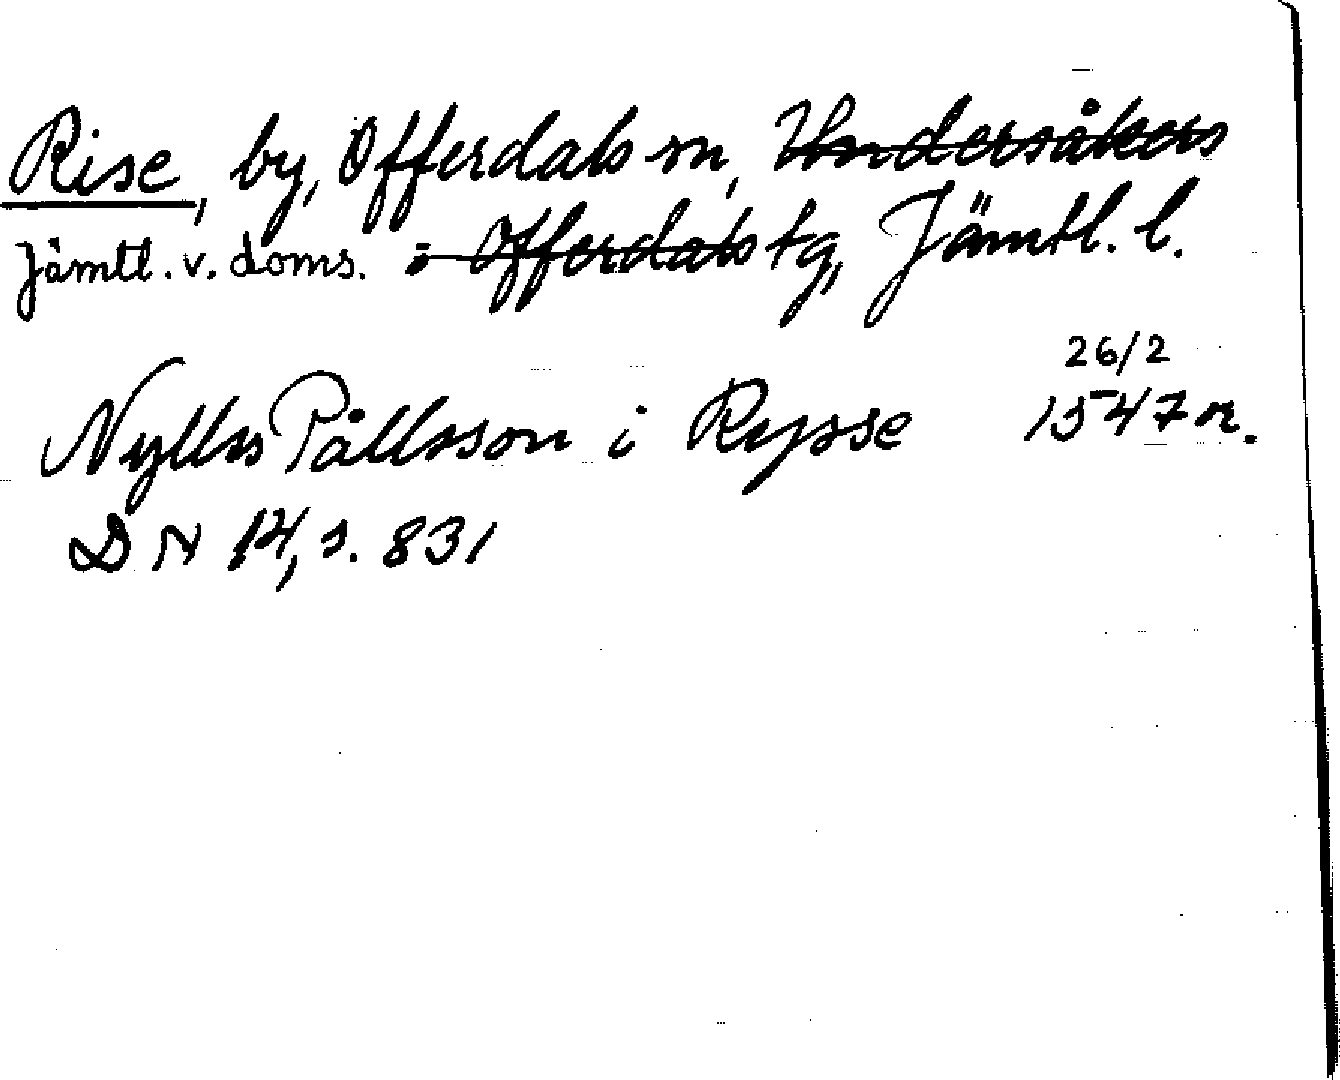 Rise, by, Offerdals sn, Undersåkers
Jämtl. v. doms. i Offerdals tg, Jämtl. l.
26/2
Nylls Pållsson i Rysse 1547 or.
DN 14, s. 831